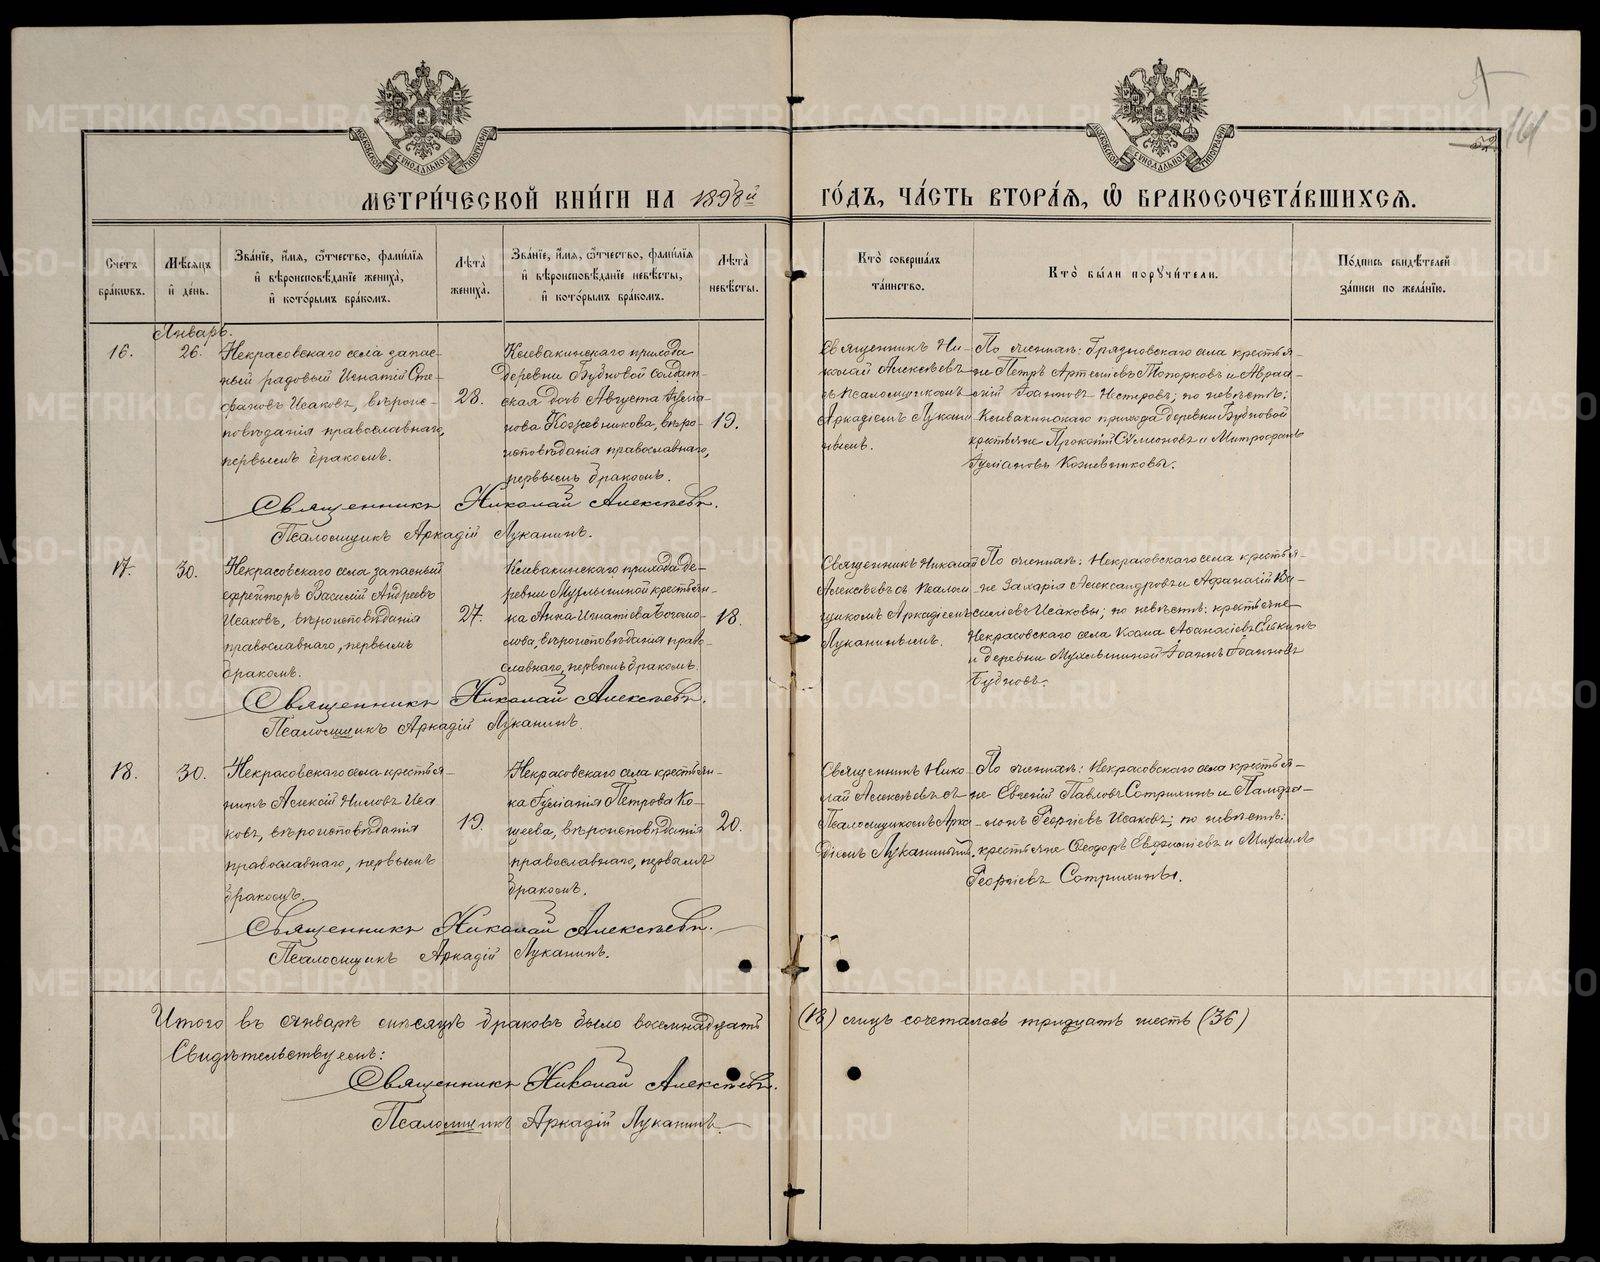 А
161
52.
МОСКОВСКОЙ СѴНОДАЛЬНОЙ ТИПОГРАФІИ
МОСКОВСКОЙ СѴНОДАЛЬНОЙ ТИПОГРАФІИ
МЕТРИ́ЧЕСКОЙ КНИ́ГИ НА 1898й ГО́ДЪ, ЧА́СТЬ ВТОРА́Я, Ѽ БРАКОСОЧЕТА́ВШИХСЯ.
Сче́тъ
бра́ковъ.
Мѣ́сяцъ
и҆ де́нь.
Зва́нїе, и҆́мя, ѻ҆́тчество, фами́лїя
и҆ вѣроисповѣ́данїе жениха̀,
и҆ кото́рымъ бра́комъ.
Лѣта̀
жениха̀.
Зва́нїе, и҆́мя, ѻ҆́тчество, фами́лїя
и҆ вѣроисповѣ́данїе невѣ́сты,
и҆ кото́рымъ бра́комъ.
Лѣта̀
невѣ́сты.
Кто̀ соверша́лъ
та́инство.
Кто̀ бы́ли порꙋчи́тели.
По́дпись свидѣ́телей
за́писи по жела́нїю.
Январь.
16.
26.
Некрасовскаго села запас-
ный рядовый Игнатій Сте-
фановъ Исаковъ, вѣроис-
повѣданія православнаго,
первымъ бракомъ.
28.
Клевакинскаго прихода
деревни Бучновой солдат-
ская дочь Августа Іулiа-
нова Кожевникова, вѣро-
исповѣданія православнаго,
первымъ бракомъ.
19.
Священникъ Ни-
колай Алексѣевъ
съ псаломщикомъ
Аркадіемъ Лукани-
нымъ.
По женихѣ: Грязновскаго села крестья-
не Петръ Артеміевъ Топорковъ и Авраа-
мій Іоанновъ Нестеровъ; по невѣстѣ:
Клевакинскаго прихода деревни
крестьяне Прокопій Сѵмеоновъ и Митрофанъ
Іуліановъ Кожевниковы.
Священникъ Николай Алексѣевъ.
Псаломщикъ Аркадій Луканинъ.
17.
30.
Некрасовскаго села запасный
ефрейторъ Василій Андреевъ
Исаковъ, вѣроисповѣданія
православнаго, первымъ
бракомъ.
27.
Клевакинскаго прихода де-
ревни крестьян-
ка Анна Игнатіева Богомо-
лова, вѣроисповѣданія право-
славнаго, первымъ бракомъ.
18.
Священникъ Николай
Алексѣевъ съ псалом-
щикомъ Аркадіемъ
Луканинымъ.
По женихѣ: Некрасовскаго села крестья-
не Захарія Александровъ и Афанасій Ва-
силіевъ Исаковы; по невѣстѣ: крестьяне
Некрасовскаго села Косма Афанасіевъ
и деревни Іоаннъ Іоанновъ
Священникъ Николай Алексѣевъ.
Псаломщикъ Аркадій Луканинъ.
18.
30.
Некрасовскаго села крестья-
нинъ Алексій Ниловъ Иса-
ковъ, вѣроисповѣданія
православнаго, первымъ
бракомъ.
19.
Некрасовскаго села крестьян-
ка Іуліанія Петрова Ко-
щеева, вѣроисповѣданія
православнаго, первымъ
бракомъ.
20.
Священникъ Нико-
лай Алексѣевъ съ
Псаломщикомъ Арка-
діемъ Луканинымъ.
По женихѣ: Некрасовскаго села крестья-
не Евгеній Павловъ Сотрихинъ и Памфи-
лонъ Георгіевъ Исаковъ; по невѣстѣ:
крестьяне Ѳеодоръ Евфиміевъ и Михаилъ
Георгіевъ Сотрихины.
Священникъ Николай Алексѣевъ.
Псаломщикъ Аркадій Луканинъ.
Итого въ январѣ мѣсяцѣ браковъ было восемнадцать (18) лицъ сочеталось тридцать шесть (36)
Свидѣтельствуемъ:
Священникъ Николай Алексѣевъ.
Псаломщикъ Аркадій Луканинъ.
METRIKI.GASO-URAL.RU